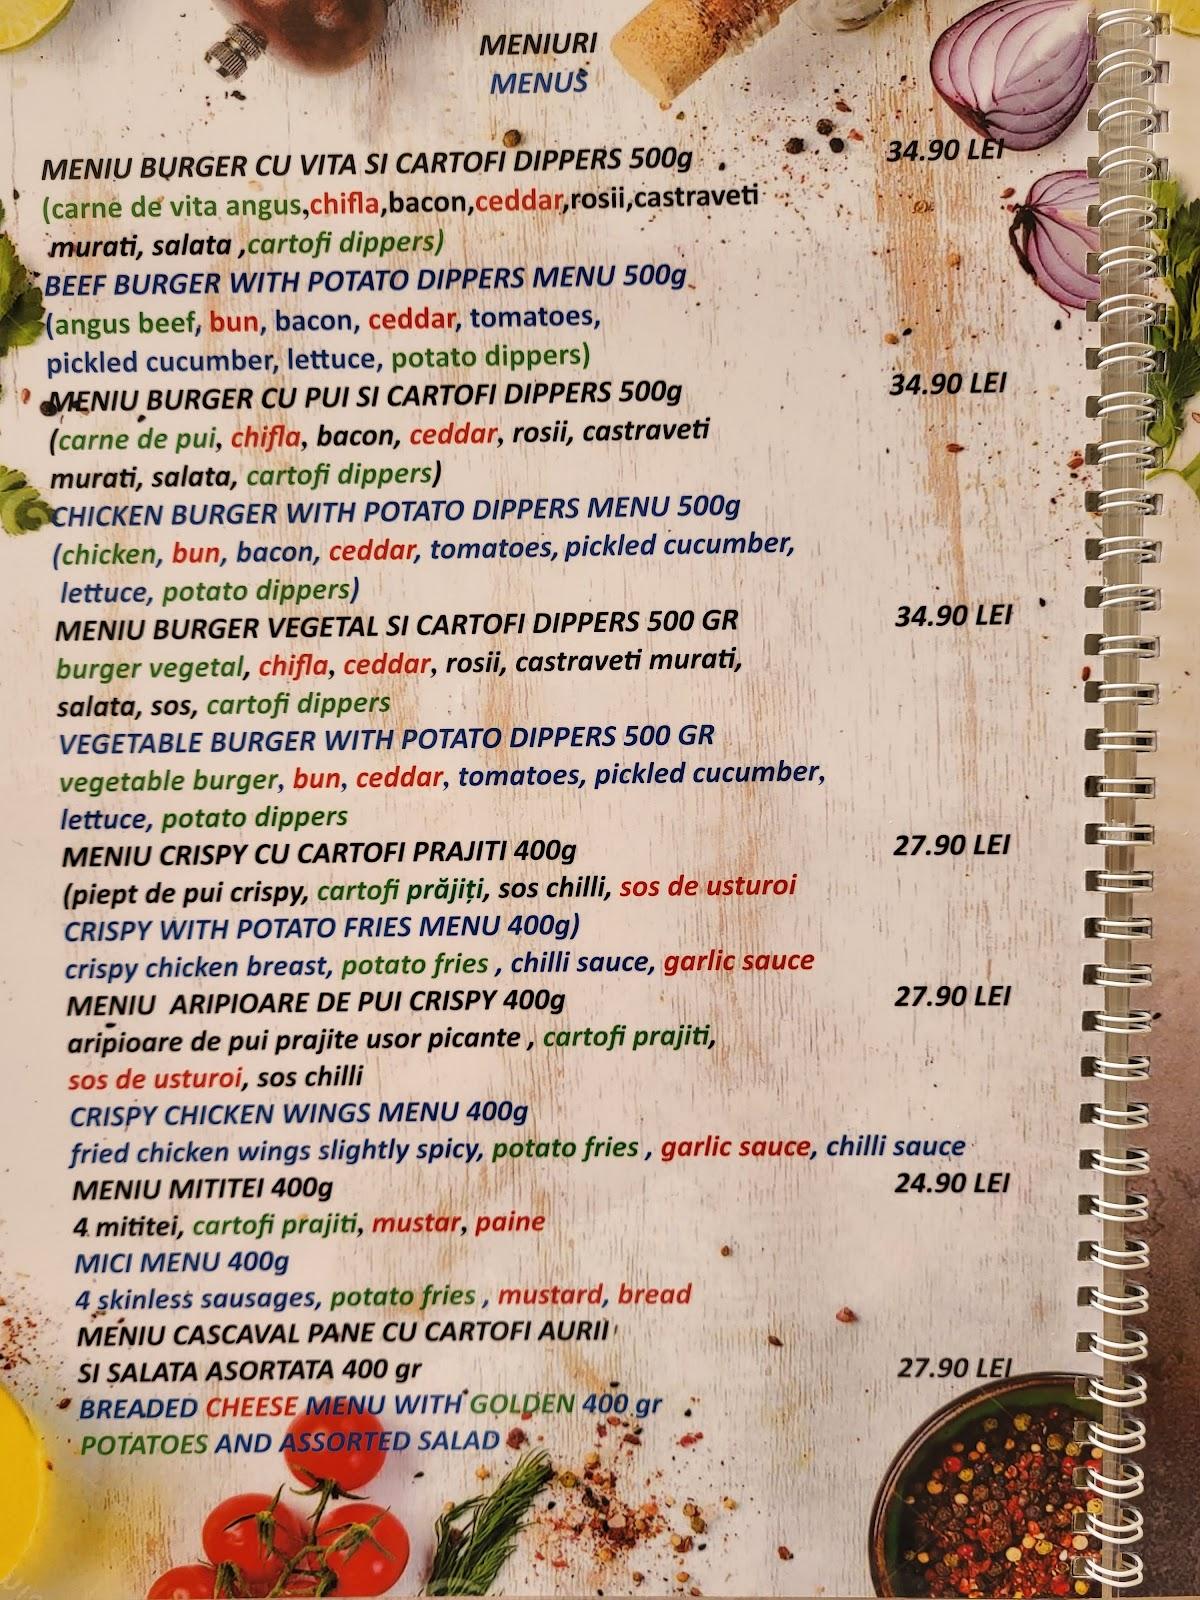 MENIURI
MENUS
MENIU BURGER CU VITA SI CARTOFI DIPPERS 500g 34.90 LEI
(carne de vita angus,chifla,bacon,ceddar,rosii,castraveti
murati, salata ,cartofi dippers)
BEEF BURGER WITH POTATO DIPPERS MENU 500g
(angus beef, bun, bacon, ceddar, tomatoes,
pickled cucumber, lettuce, potato dippers)
MENIU BURGER CU PUI SI CARTOFI DIPPERS 500g 34.90 LEI
(carne de pui, chifla, bacon, ceddar, rosii, castraveti
murati, salata, cartofi dippers)
CHICKEN BURGER WITH POTATO DIPPERS MENU 500g
(chicken, bun, bacon, ceddar, tomatoes, pickled cucumber,
lettuce, potato dippers)
MENIU BURGER VEGETAL SI CARTOFI DIPPERS 500 GR 34.90 LEI
burger vegetal, chifla, ceddar, rosii, castraveti murati,
salata, sos, cartofi dippers
VEGETABLE BURGER WITH POTATO DIPPERS 500 GR
vegetable burger, bun, ceddar, tomatoes, pickled cucumber,
lettuce, potato dippers
MENIU CRISPY CU CARTOFI PRAJITI 400g 27.90 LEI
(piept de pui crispy, cartofi prăjiți, sos chilli, sos de usturoi
CRISPY WITH POTATO FRIES MENU 400g)
crispy chicken breast, potato fries , chilli sauce, garlic sauce
MENIU ARIPIOARE DE PUI CRISPY 400g 27.90 LEI
aripioare de pui prajite usor picante , cartofi prajiti,
sos de usturoi, sos chilli
CRISPY CHICKEN WINGS MENU 400g
fried chicken wings slightly spicy, potato fries , garlic sauce, chilli sauce
MENIU MITITEI 400g 24.90 LEI
4 mititei, cartofi prajiti, mustar, paine
MICI MENU 400g
4 skinless sausages, potato fries , mustard, bread
MENIU CASCAVAL PANE CU CARTOFI AURII
SI SALATA ASORTATA 400 gr 27.90 LEI
BREADED CHEESE MENU WITH GOLDEN 400 gr
POTATOES AND ASSORTED SALAD